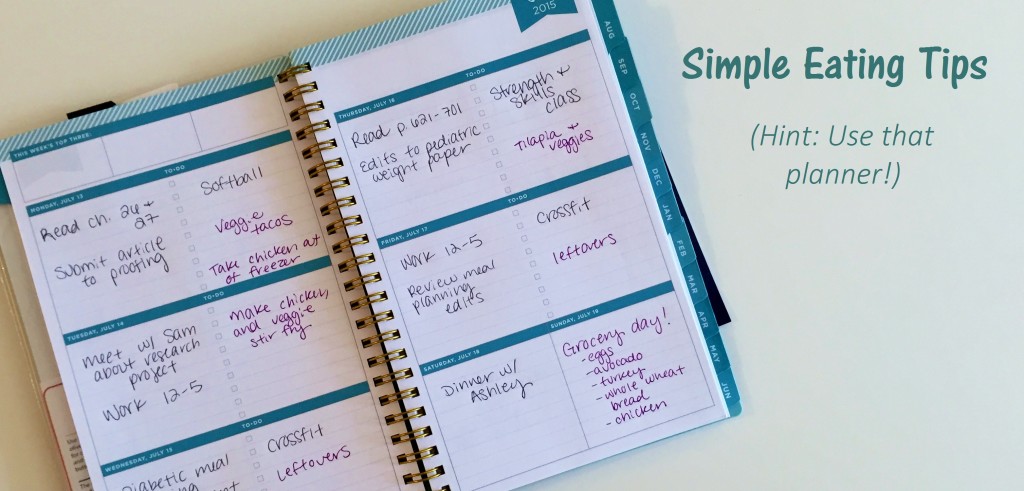 THIS WEEK'S TOP THREE:
MONDAY, JULY 13
TO-DO
Read ch. 26 +
27
Submit article
to proofing
Softball
veggie
tacos
Take chicken out
of freezer
TUESDAY, JULY 14
TO-DO
Meet w/ Sam
about research
project
Work 12-5
make chicken,
and veggie
stir fry
WEDNESDAY, JULY 15
TO-DO
Diabetic meal
Crossfit
Leftovers
2015
THURSDAY, JULY 16
TO-DO
Read p. 621-701
Edits to pediatric
weight paper
Strength +
skills
class
Tilapia +
veggies
FRIDAY, JULY 17
TO-DO
Work 12-5
Review meal
planning
edits
Crossfit
leftovers
SATURDAY, JULY 18
Dinner w/
Ashley
SUNDAY, JULY 19
Grocery day!
-eggs
-avocado
-turkey
-whole wheat
bread
-chicken
AUG
SEP
OCT
NOV
DEC
JAN
FEB
MAR
APR
MAY
JUN
Simple Eating Tips
(Hint: Use that
planner!)